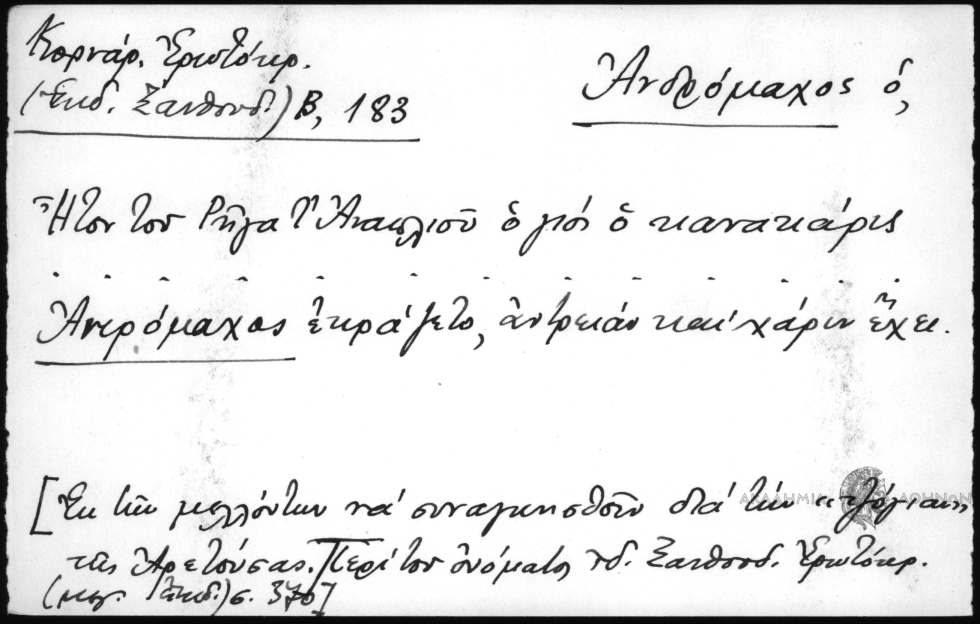 Κορνάρ. Ἐρωτόκρ.
(Ἐκδ. Ξανθουδ.) Β, 183
Ἀνδρόμαχος ὁ,
Ἦτον τοῦ Ρῆγα τ' Ἀναπλιοῦ ὁ γιός ὁ κανακάρις
Ἀντρόμαχος ἐκράζετο, ἀντρειάν καί χάριν ἔχει.
[Ἐκ τῶν μελλόντων νά συναγωνισθοῦν διά τήν «τζόγιαν»
τῆς Ἀρετούσας. Περί τοῦ ὀνόματος ἰδ. Ξανθουδ. Ἐρωτόκρ.
(μεγ. ἐκδ.) σ. 370]
ΑΚΑΔΗΜΙΑ ΑΘΗΝΩΝ